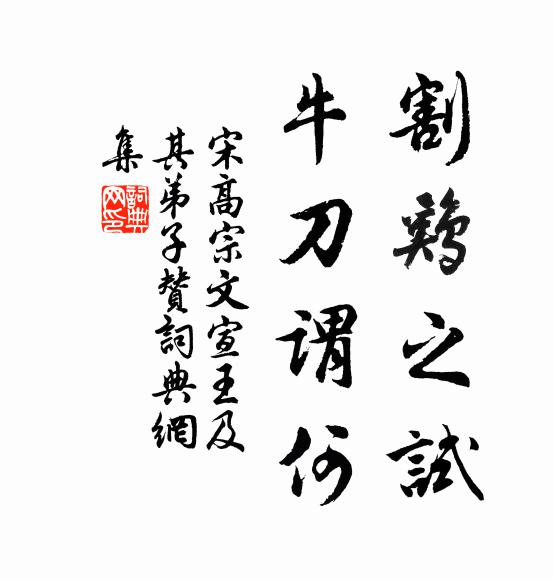 割鷄之試
牛刀謂何
宋高宗文宣王及
其弟子贊詞典網
集
詞典
网印